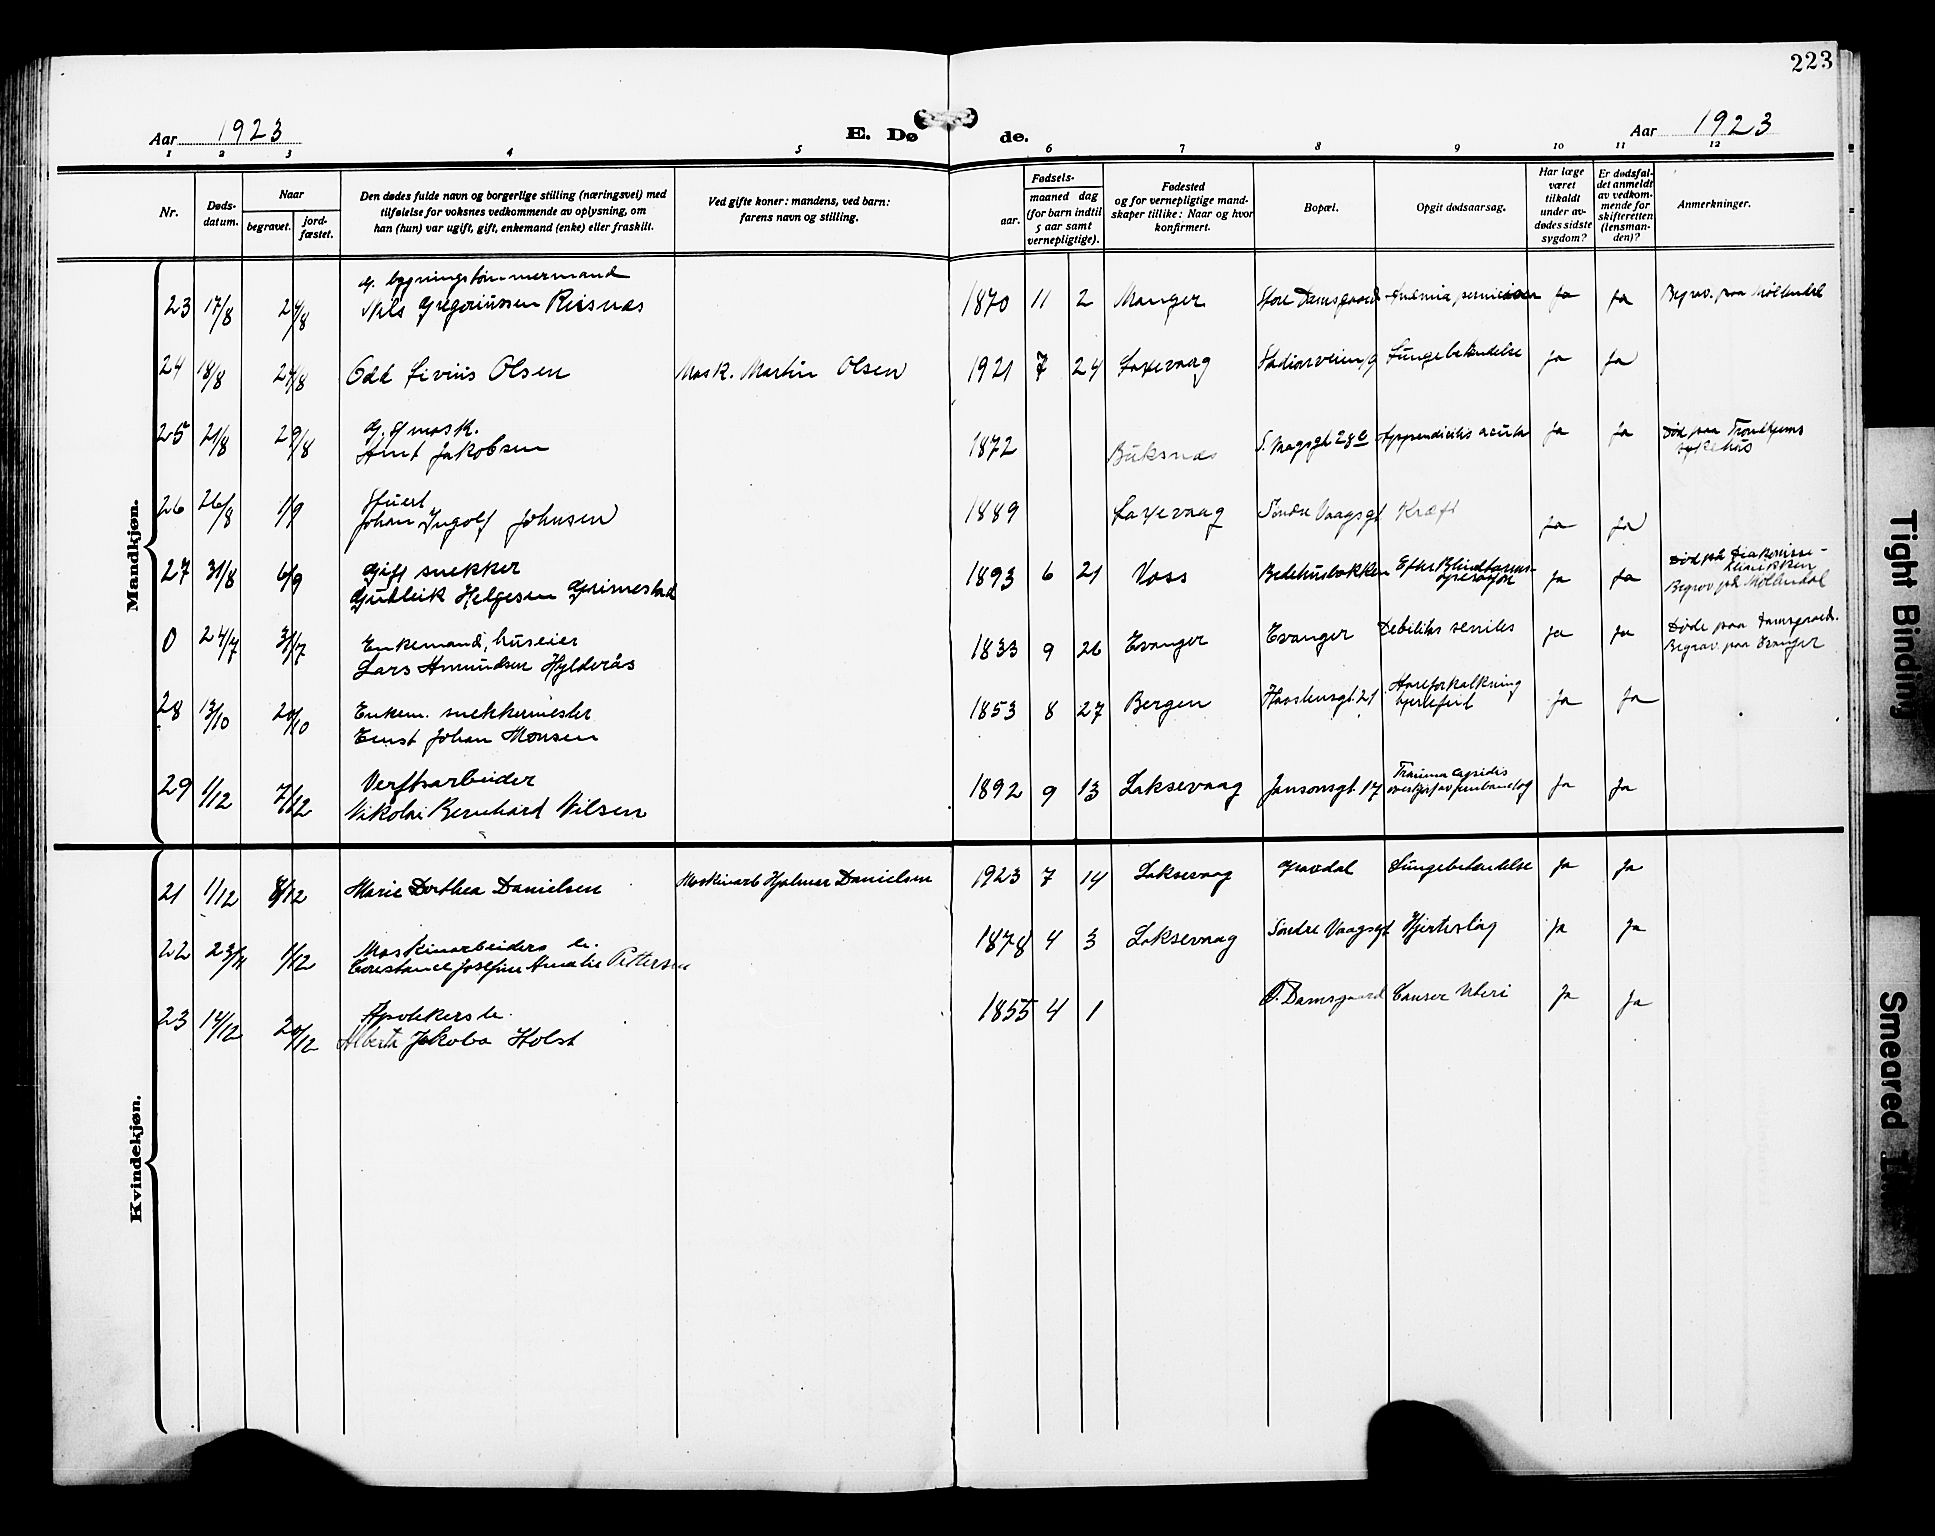 223
Aar 1923
E. Dø
de.
Aar 1923
1 2 3 4 5 6 7 8 9 10 11 12
Nr.
Døds-
datum.
Naar
begravet.
jord-
fæstet.
Den dødes fulde navn og borgerlige stilling (næringsvei) med
tilføielse for voksnes vedkommende av oplysning, om
han (hun) var ugift, gift, enkemand (enke) eller fraskilt.
Ved gifte koner: mandens, ved barn:
farens navn og stilling.
Fødsels-
aar.
maaned dag
(for barn indtil
5 aar samt
vernepligtige).
Fødested
og for vernepligtige mand-
skaper tillike: Naar og hvor
konfirmert.
Bopæl.
Opgit dødsaarsag.
Har læge
været
tilkaldt
under av-
dødes sidste
sygdom?
Er dødsfal-
det anmeldt
av vedkom-
mende for
skifteretten
(lensman-
den)?
Anmerkninger.
Mandkjøn.
g. bygningstømmermand
23 17/8 24/8 Nils Gregoriussen Risnes 1870 11 2 Manger Store Damsgaard Anemia perniciosa Ja Ja Begrav. paa Møllendal
24 18/8 24/8 Odd Livius Olsen Mask. Martin Olsen 1921 7 24 Laxevaag Lungebetendelse Ja Ja
25 21/8 29/8 Arnt Jakobsen 1872 Buksnes S. Vaagsgt 28 Appendicitis acuta Ja Ja Død paa Trondhjems
sykehus
Stuert
26 26/8 1/9 Johan Ingolf Johnsen 1889 Laxevaag Søndre Vaagsgt Kræft Ja Ja
Gift snekker
27 31/8 6/9 Gutleik Helgesen Grimestad 1893 6 21 Voss Bedehusbakken Efter Blindtarms-
operasjon Ja Ja Død på Diakonisse-
klinikken
Begrav på Møllendal
Enkemand, huseier
0 24/7 31/7 Lars Amundsen Hylderås 1833 9 26 Evanger Evanger Debilitas senilis Ja Ja Døde paa Damsgaard.
Begrav. paa Evanger
Enkem. snekkermester
28 13/10 20/10 Ernst Johan Monsen 1853 8 27 Bergen 21 Aareforkalkning
hjertefeil Ja Ja
Verftsarbeider
29 1/12 7/12 Nikolai Bernhard Nilsen 1892 9 13 Laksevaag Jansonsgt. 17 Trauma capitis
Ja Ja
Kvindekjøn.
21 1/12 8/12 Marie Dorthea Danielsen Maskinarb Hjalmar Danielsen 1923 7 14 Laksevaag Gravdal Lungebetendelse Ja Ja
Maskinarbeiders e.
22 23/11 1/12 Constance Josefine Amalie Pettersen 1878 4 3 Laksevaag Søndre Vaagsgt Hjerteslag Ja Ja
Apotekers e.
23 14/12 20/12 Alberta Jakoba Holst 1855 4 1 Ø. Damsgaard Cancer Uteri Ja Ja
Tight Binding
Smeared